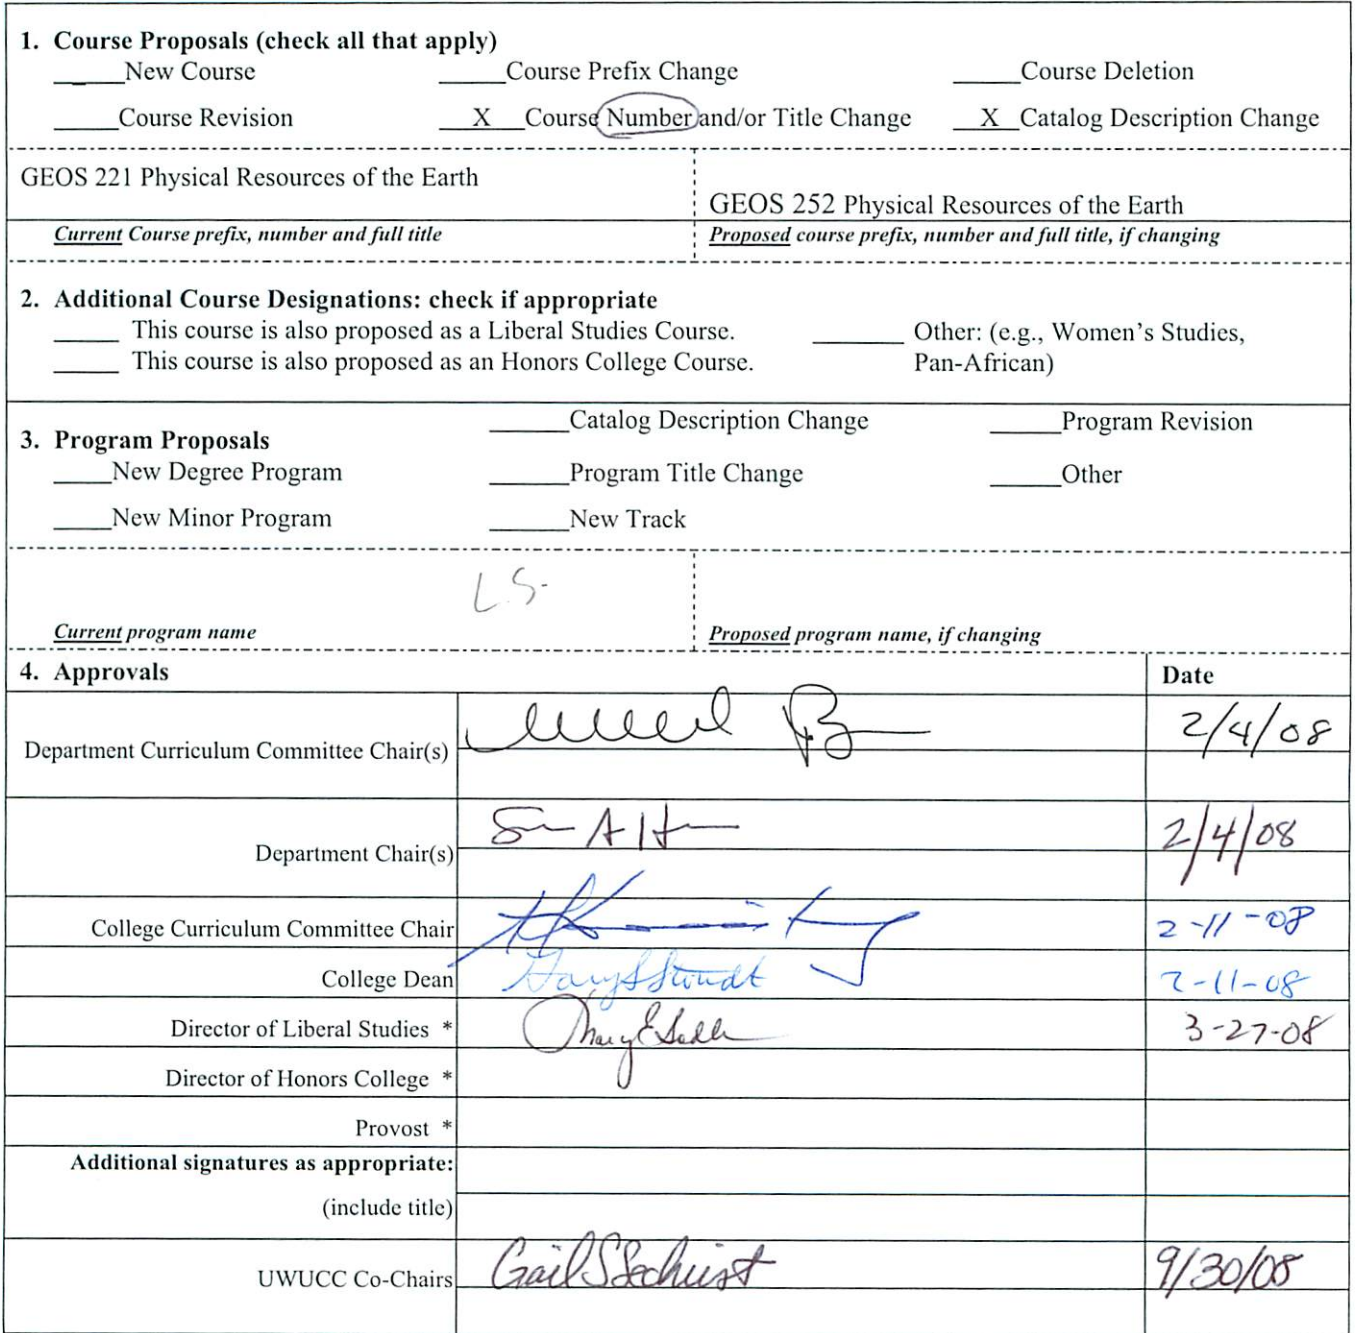 1. Course Proposals (check all that apply)
_____New Course _____Course Prefix Change _____Course Deletion
_____Course Revision __X__Course Number and/or Title Change __X__Catalog Description Change
GEOS 221 Physical Resources of the Earth
GEOS 252 Physical Resources of the Earth
Current Course prefix, number and full title
Proposed course prefix, number and full title, if changing
2. Additional Course Designations: check if appropriate
_____ This course is also proposed as a Liberal Studies Course.
_____ This course is also proposed as an Honors College Course.
_____ Other: (e.g., Women's Studies,
Pan-African)
_____Catalog Description Change _____Program Revision
3. Program Proposals
_____New Degree Program _____Program Title Change _____Other
_____New Minor Program _____New Track
L.S.
Current program name
Proposed program name, if changing
4. Approvals Date
Department Curriculum Committee Chair(s) 2/4/08
Department Chair(s) 2/4/08
College Curriculum Committee Chair 2-11-08
College Dean Gary S Stoudt 2-11-08
Director of Liberal Studies * Mary E Sadler 3-27-08
Director of Honors College *
Provost *
Additional signatures as appropriate:
(include title)
UWUCC Co-Chairs Gail S Sechrist 9/30/08